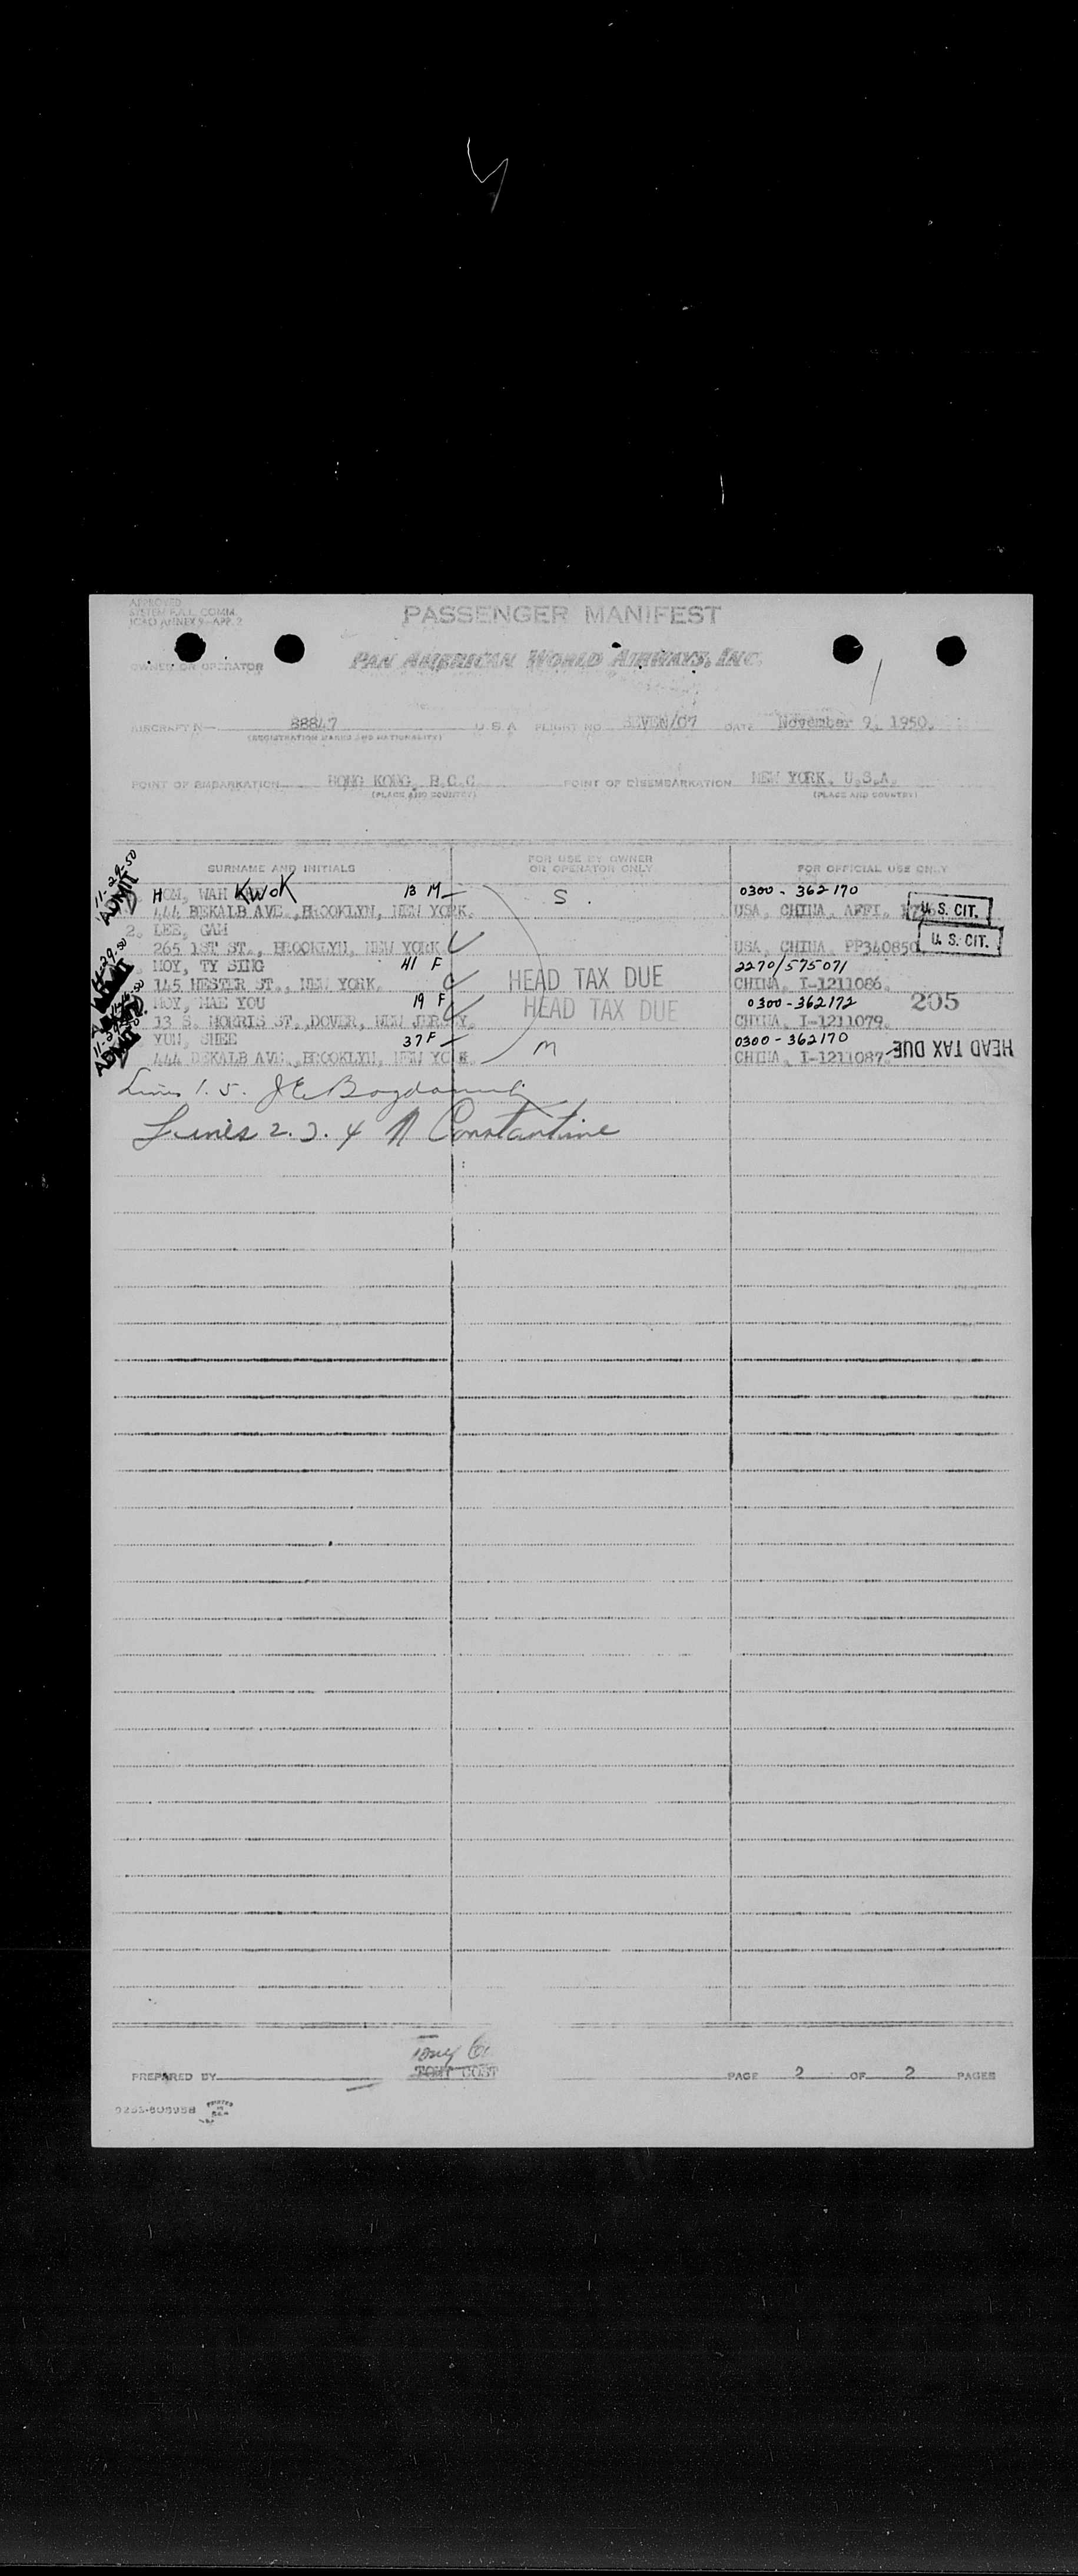 APPROVED
SYSTEM F.A.L. COMM.
ICAO ANNEX 9-APP. 2
PASSENGER MANIFEST
OWNER OR OPERATOR
PAN AMERICAN WORLD AIRWAYS, INC.
AIRCRAFT N— 88847 U S A FLIGHT NO. SEVEN/07 DATE November 9, 1950.
(REGISTRATION MARKS AND NATIONALITY)
POINT OF EMBARKATION HONG KONG, B.C.C. POINT OF DISEMBARKATION NEW YORK, U.S.A.
(PLACE AND COUNTRY) (PLACE AND COUNTRY)
SURNAME AND INITIALS FOR USE BY OWNER OR OPERATOR ONLY FOR OFFICIAL USE ONLY
11-29-50 ADMIT
HOM, WAH KWOK 13 M S. 0300-362170
444 DEKALB AVE., BROOKLYN, NEW YORK. USA, CHINA, AFFI. U. S. CIT.
2. LEE, GAM
265 1ST ST., BROOKLYN, NEW YORK USA, CHINA, PP340850 U. S. CIT.
MOY, TY SING 41 F 2270/575071
145 HESTER ST., NEW YORK. HEAD TAX DUE CHINA, I-1211086.
MOY, MAE YOU 19 F HEAD TAX DUE 0300-362172 205
13 S. MORRIS ST., DOVER, NEW JERSEY. CHINA, I-1211079.
YUN, SHEE 37 F M 0300-362170
444 DEKALB AVE., BROOKLYN, NEW YORK. CHINA, I-1211087. HEAD TAX DUE
ADMIT
Lines 1. 5. J E
Lines 2. 3. 4 N Constantine
Tony
PREPARED BY TONY COST PAGE 2 OF 2 PAGES
PRINTED IN U.S.A.